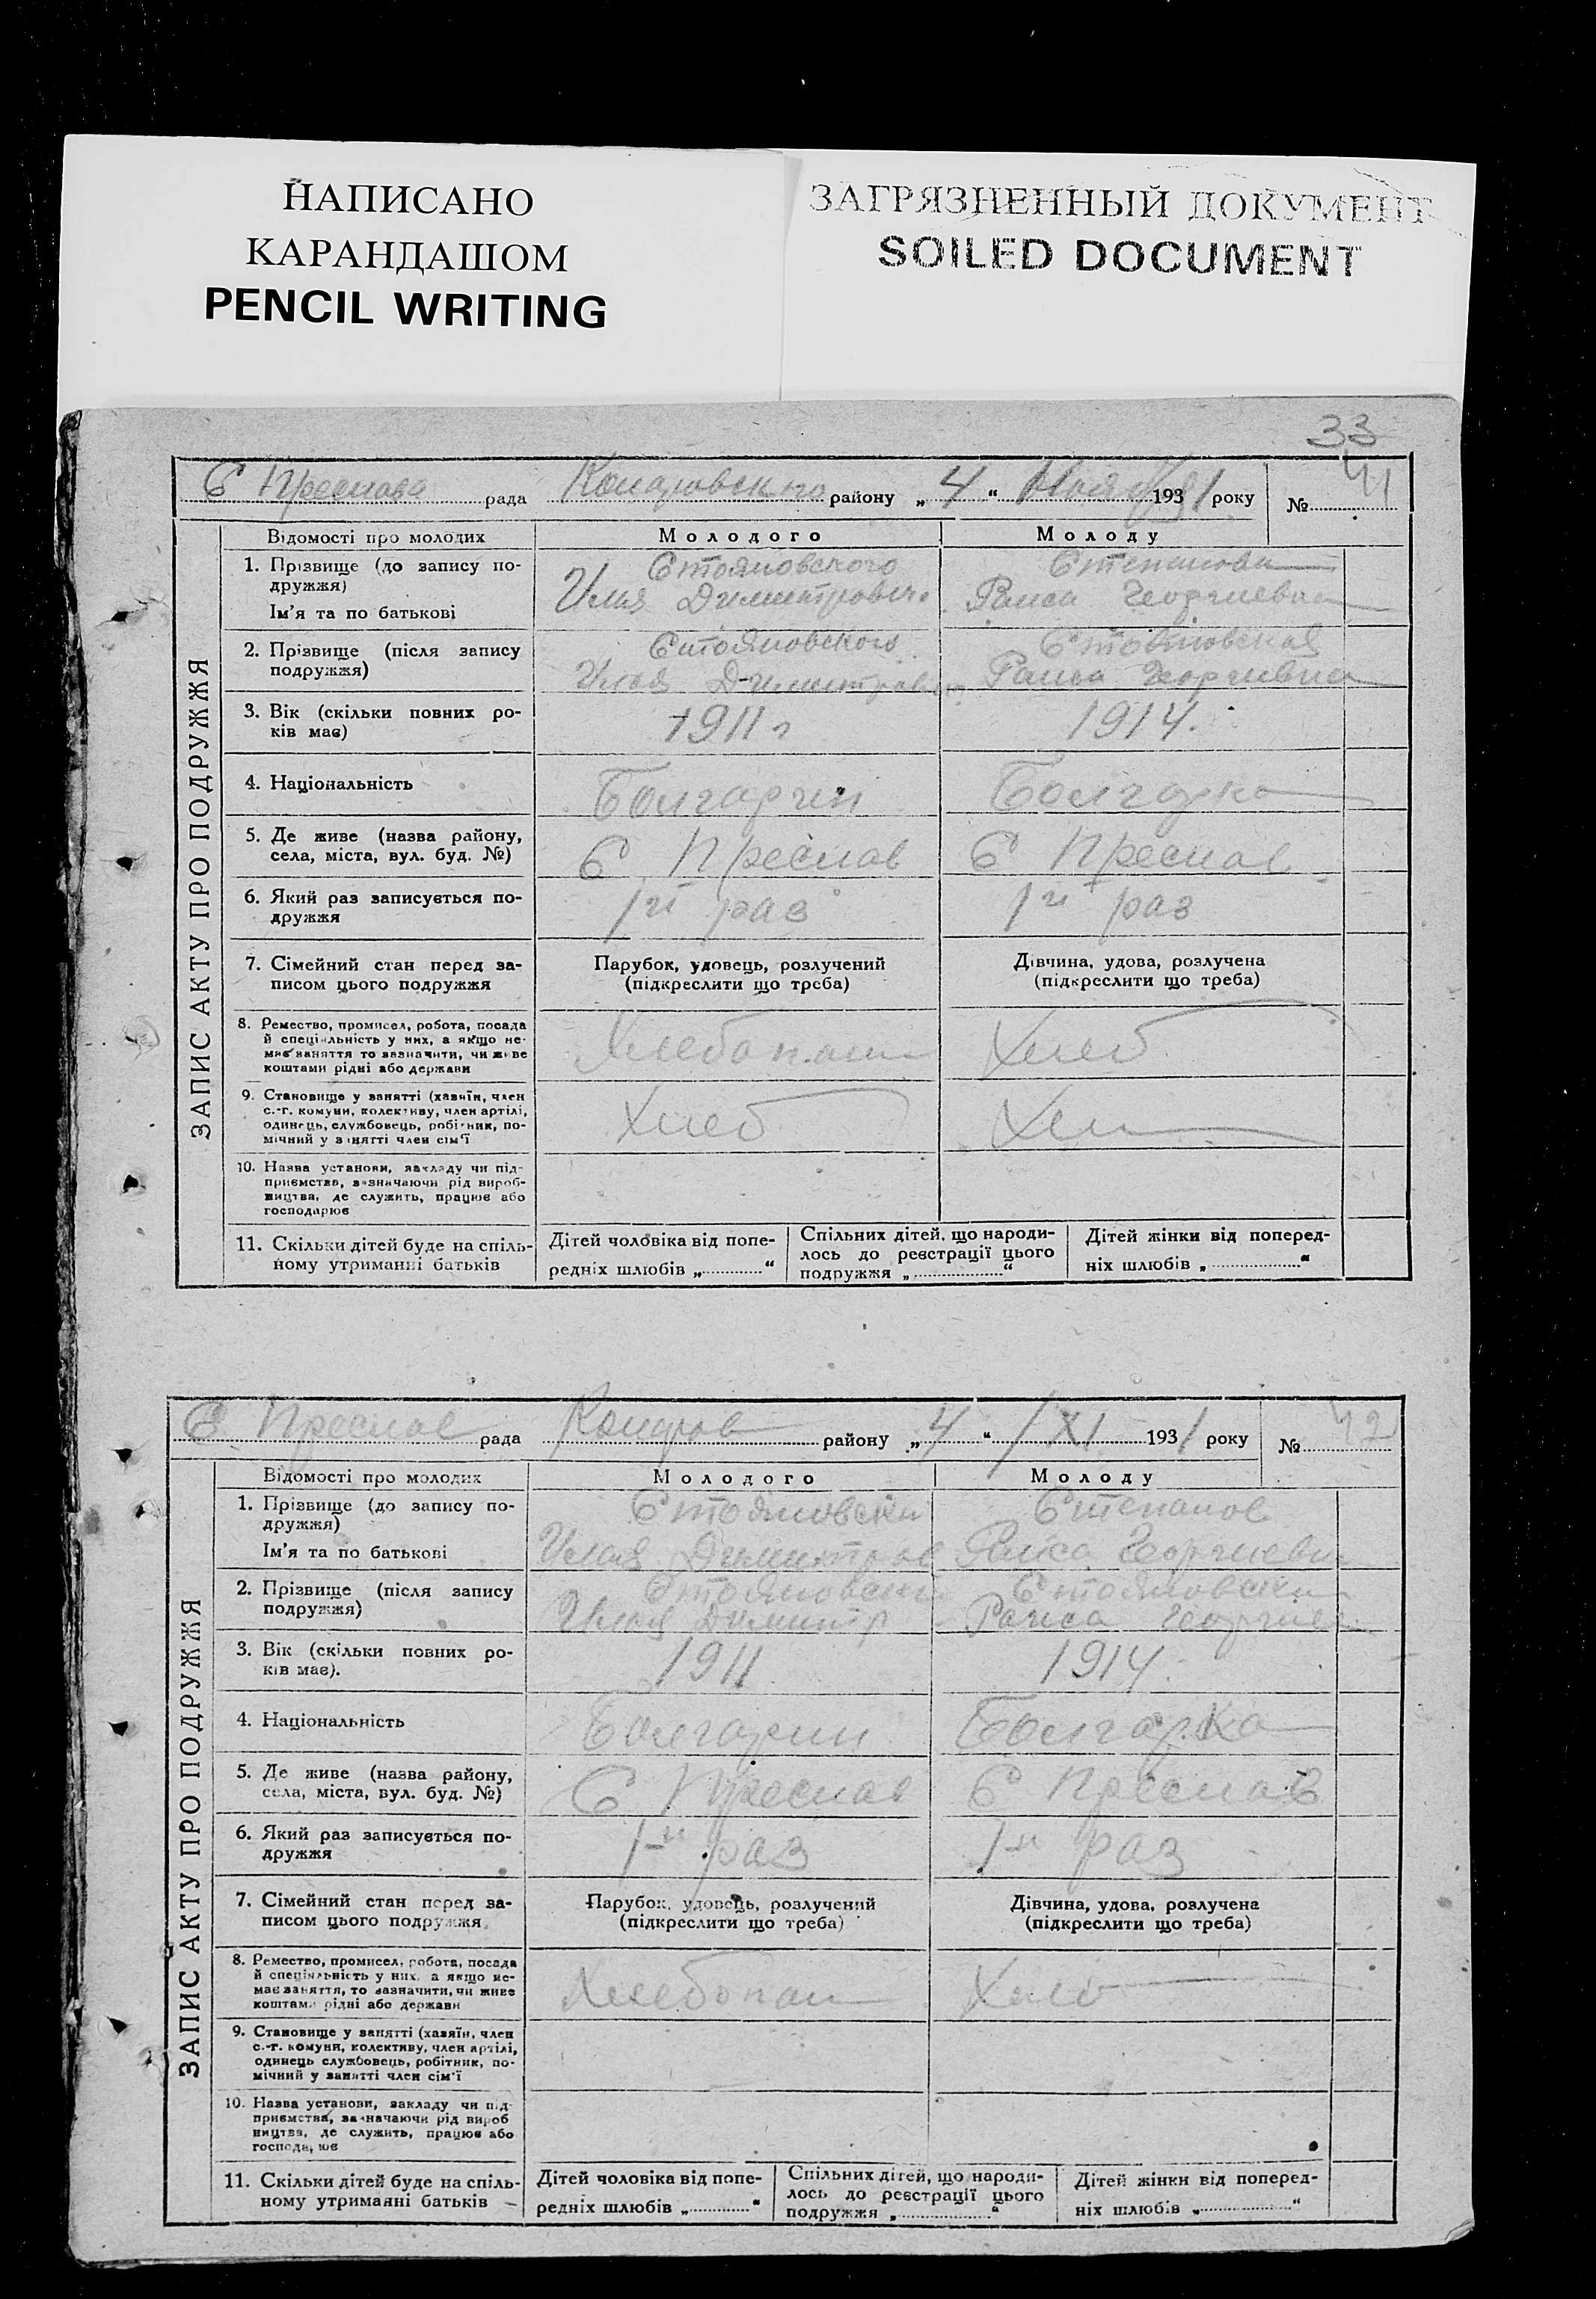 НАПИСАНО
КАРАНДАШОМ
PENCIL WRITING
ЗАГРЯЗНЕННЫЙ ДОКУМЕНТ
SOILED DOCUMENT
33
С Преслава рада района „ 4 “ Ноября 1931 року № 41
ЗАПИС АКТУ ПРО ПОДРУЖЖЯ
Відомості про молодих
Молодого
Молоду
1. Прізвище (до запису по-
дружжя)
Ім'я та по батькові
Стояновского
Илья Димитрович
Степанова
Раиса Георгиевна
2. Прізвище (після запису
подружжя)
Стояновского
Илья Димитрович
Стояновская
Раиса Георгивна
3. Вік (скільки повних ро-
ків має)
1911 г
1914.
4. Національність
Болгарин
Болгарка
5. Де живе (назва району,
села, міста, вул. буд. №)
С Преслав
С Преслав
6. Який раз записується по-
дружжя
1й раз
1й раз
7. Сімейний стан перед за-
писом цього подружжя
Парубок, удовець, розлучений
(підкреслити що треба)
Дівчина, удова, розлучена
(підкреслити що треба)
8. Ремество, промисел, робота, посада
й спеціяльність у них, а якщо не-
має заняття то зазначити, чи живе
коштами рідні або держави
Хлебопаш
Хлеб
9. Становище у занятті (хазяїн, член
с.-г. комуни, колективу, член артілі,
одинець, службовець, робітник, по-
мічний у занятті член сім'ї
Хлеб
Хл
10. Назва установи, закладу чи під-
приємства, зазначаючи рід вироб-
ництва, де служить, працює або
господарює
11. Скільки дітей буде на спіль-
ному утриманні батьків
Дітей чоловіка від попе-
редніх шлюбів „ “
Спільних дітей, що народи-
лось до реєстрації цього
подружжя „ “
Дітей жінки від поперед-
ніх шлюбів „ “
С. Преслав рада району „ 4 “ / XI 1931 року № 42
ЗАПИС АКТУ ПРО ПОДРУЖЖЯ
Відомості про молодих
Молодого
Молоду
1. Прізвище (до запису по-
дружжя)
Ім'я та по батькові
Стояновски
Илья Димитров
Степанов
Раиса Георгиевн
2. Прізвище (після запису
подружжя)
Стояновск
Илья Димитр
Стояновски
Раиса Георгиев
3. Вік (скільки повних ро-
ків має).
1911
1914.
4. Національність
Болгарин
Болгарка
5. Де живе (назва району,
села, міста, вул. буд. №)
С Преслав
С Преслав
6. Який раз записується по-
дружжя
1-й раз
1-й раз
7. Сімейний стан перед за-
писом цього подружжя
Парубок, удовець, розлучений
(підкреслити що треба)
Дівчина, удова, розлучена
(підкреслити що треба)
8. Ремество, промисел, робота, посада
й спеціяльність у них, а якщо не-
має заняття, то зазначити, чи живе
коштами рідні або держави
Хлебопаш
Хлеб
9. Становище у занятті (хазяїн, член
с.-г. комуни, колективу, член артілі,
одинець службовець, робітник, по-
мічний у занятті член сім'ї
10. Назва установи, закладу чи під-
приємства, зазначаючи рід вироб
ництва, де служить, працює або
господарює
11. Скільки дітей буде на спіль-
ному утриманні батьків
Дітей чоловіка від попе-
редніх шлюбів „ “
Спільних дітей, що народи-
лось до реєстрації цього
подружжя „ “
Дітей жінки від поперед-
ніх шлюбів „ “